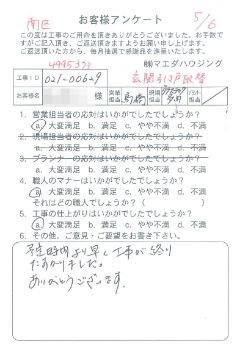 南区
お客様アンケート
5/6
この度は工事のご用命を頂きありがとうございました。お手数で
すがご記入頂き、ご返送頂きますようお願い申し上げます。
ご返送頂いた方に、毎月抽選で感謝券を進呈いたします。
㈱マエダハウジング
工事ID 021-00629 玄関引戸取替
お客様名 様 営業担当 現場担当 プラン担当
1. 営業担当者の応対はいかがでしたでしょうか?
a 大変満足 b. 満足 c. やや不満 d. 不満
2. 現場担当者の応対はいかがでしたでしょうか?
a. 大変満足 b. 満足 c. やや不満 d. 不満
3. プランナーの応対はいかがでしたでしょうか?
a. 大変満足 b. 満足 c. やや不満 d. 不満
4. 職人のマナーはいかがでしたでしょうか?
a 大変満足 b. 満足 c. やや不満 d. 不満
それはどの職人でしょうか?( )
5. 工事の仕上がりはいかがでしたでしょうか?
a 大変満足 b. 満足 c. やや不満 d. 不満
6. その他、ご意見・ご要望をお書き下さい。
予定時間より早く工事が終り
たすかりました。
ありがとうございます.